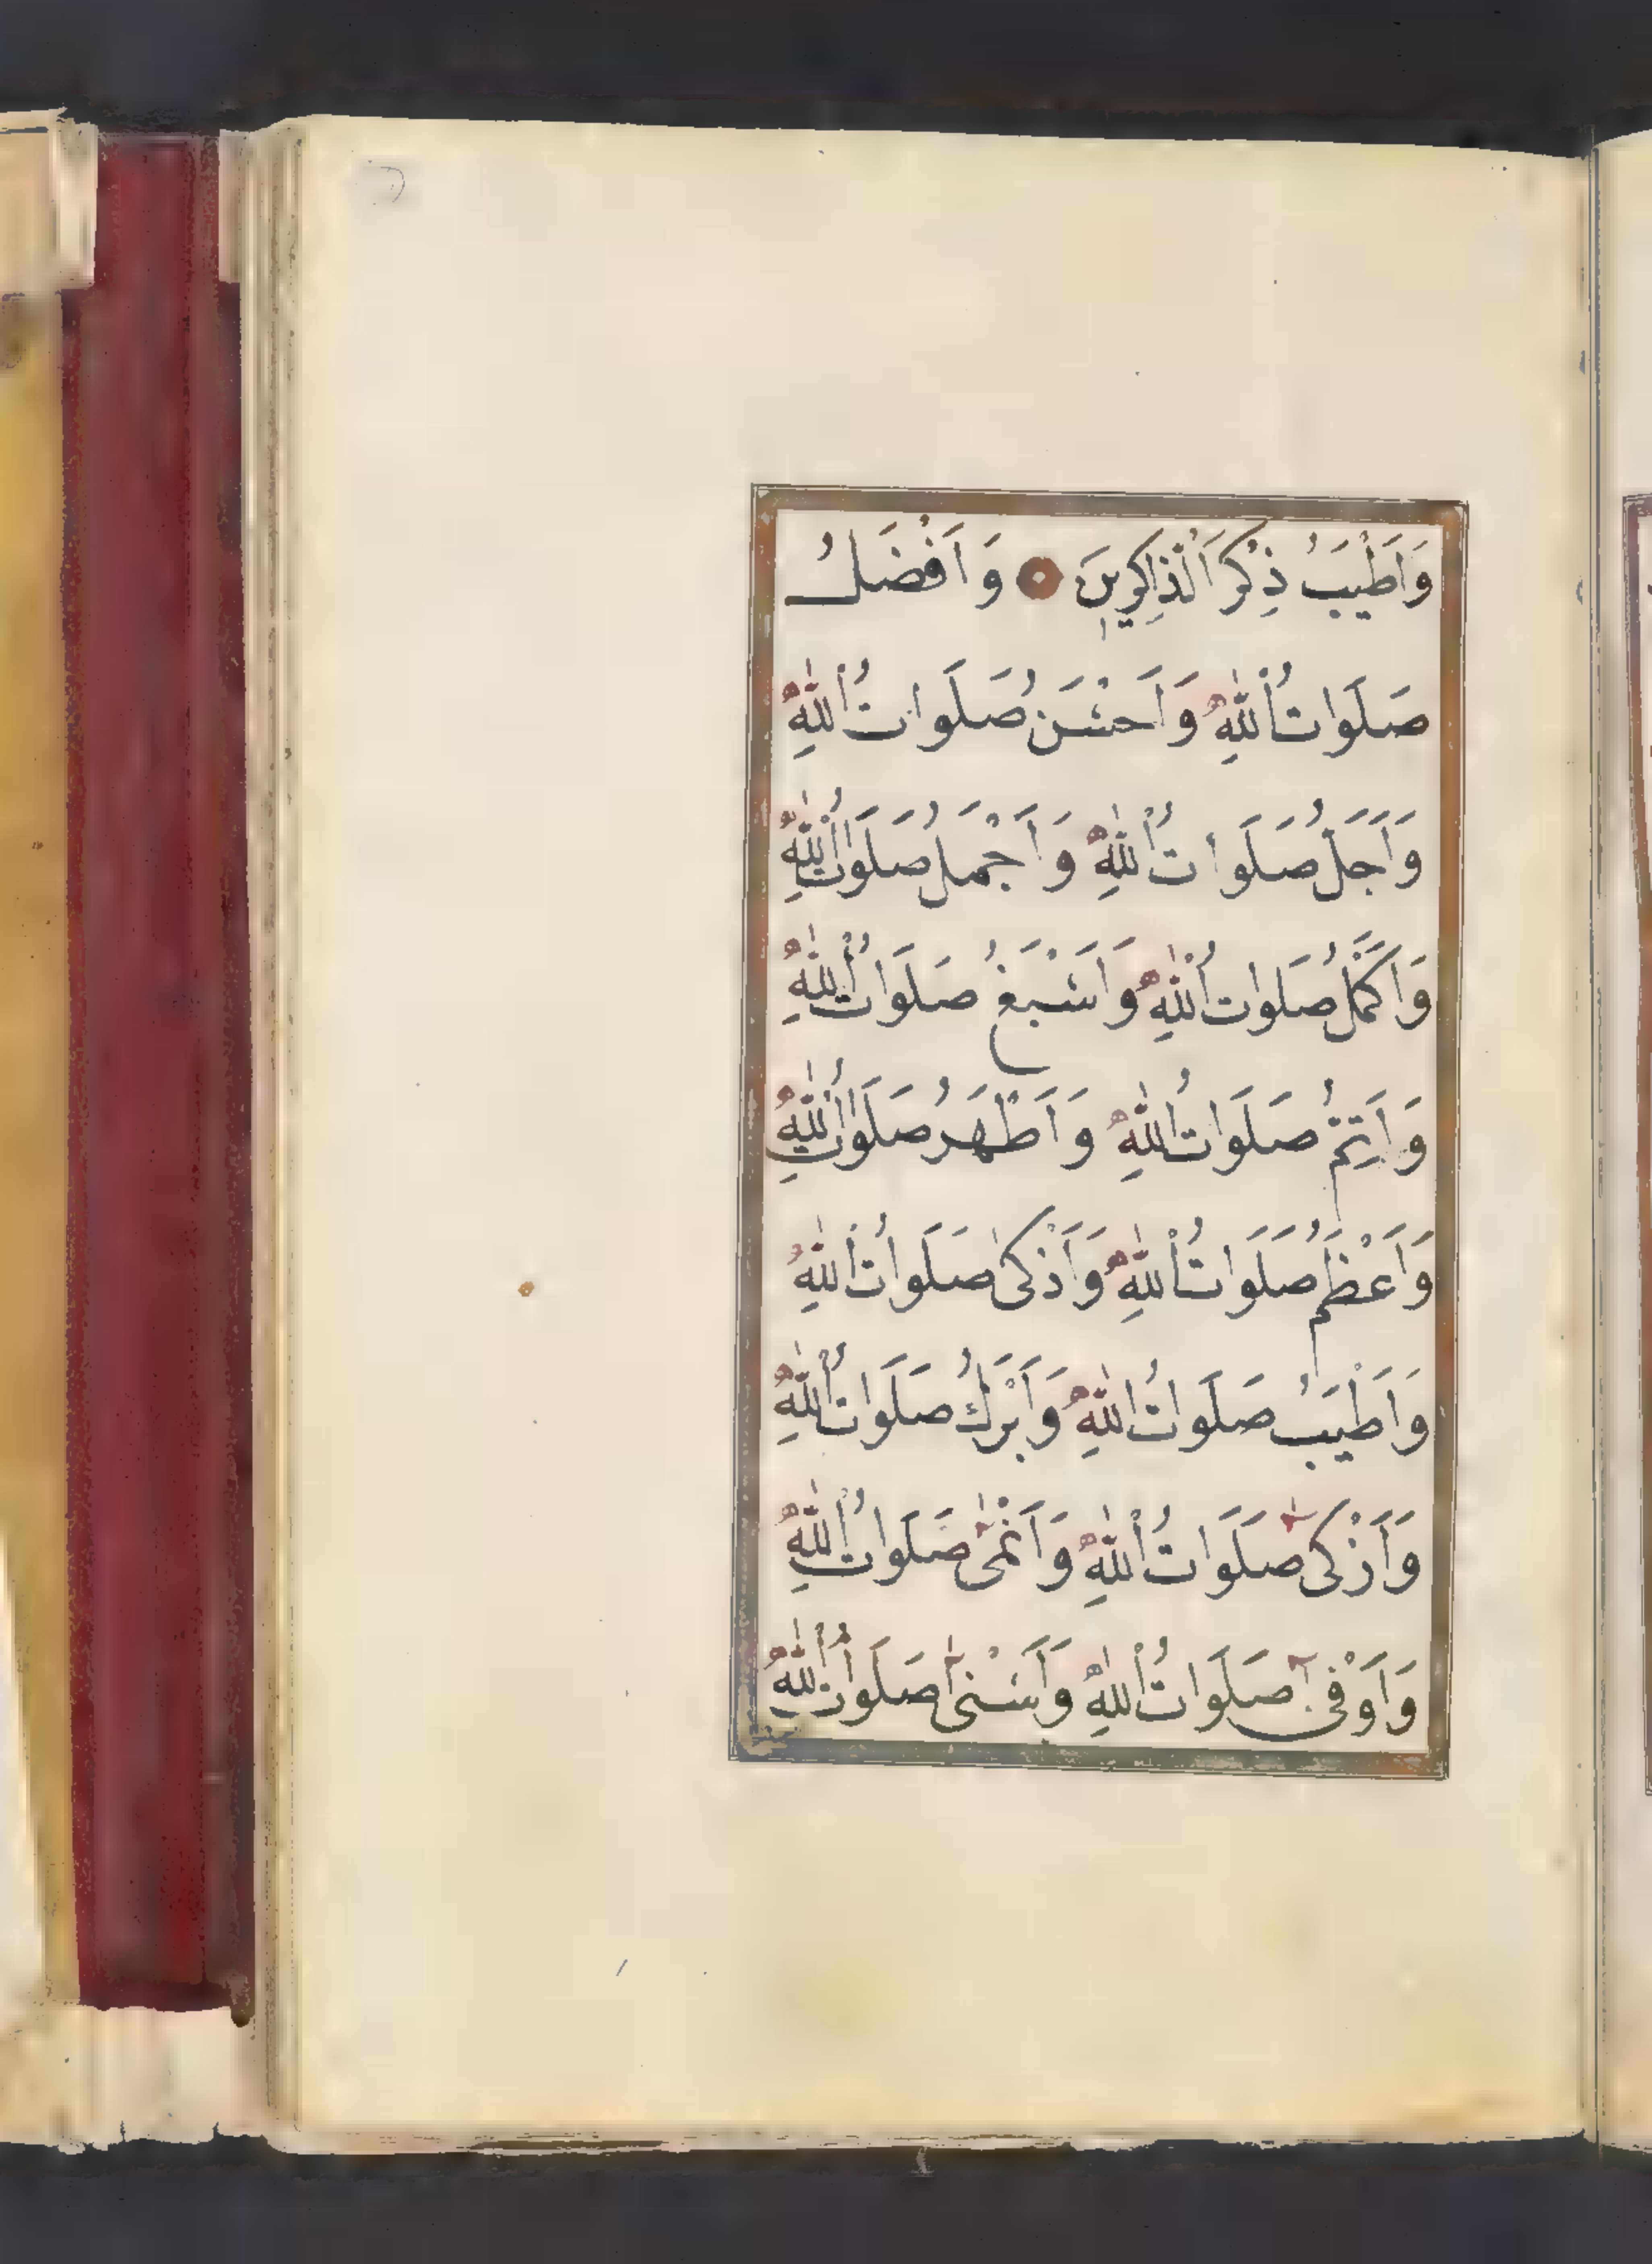 وَاَطْيَبُ ذِكْرَ الْذَاكِرِينَ وَ اَفْضَلُ
صَلَوَاتُ اللّٰهِ وَ اَحْسَنُ صَلَوَاتُ اللّٰهِ
وَ اَجَلُّ صَلَوَاتُ اللّٰهِ وَ اَجْمَلُ صَلَوَاتُ اللّٰهِ
وَ اَكْمَلُ صَلَوَاتُ اللّٰهِ وَ اَسْبَغُ صَلَوَاتُ اللّٰهِ
وَ اَتَمُّ صَلَوَاتُ اللّٰهِ وَ اَظْهَرُ صَلَوَاتُ اللّٰهِ
وَ اَعْظَمُ صَلَوَاتُ اللّٰهِ وَ اَذْكٰى صَلَوَاتُ اللّٰهِ
وَ اَطْيَبُ صَلَوَاتُ اللّٰهِ وَ اَبْرَكُ صَلَوَاتُ اللّٰهِ
وَ اَزْكٰى صَلَوَاتُ اللّٰهِ وَ اَنْمٰى صَلَوَاتُ اللّٰهِ
وَ اَوْفٰى صَلَوَاتُ اللّٰهِ وَ اَسْنٰى صَلَوَاتُ اللّٰهِ